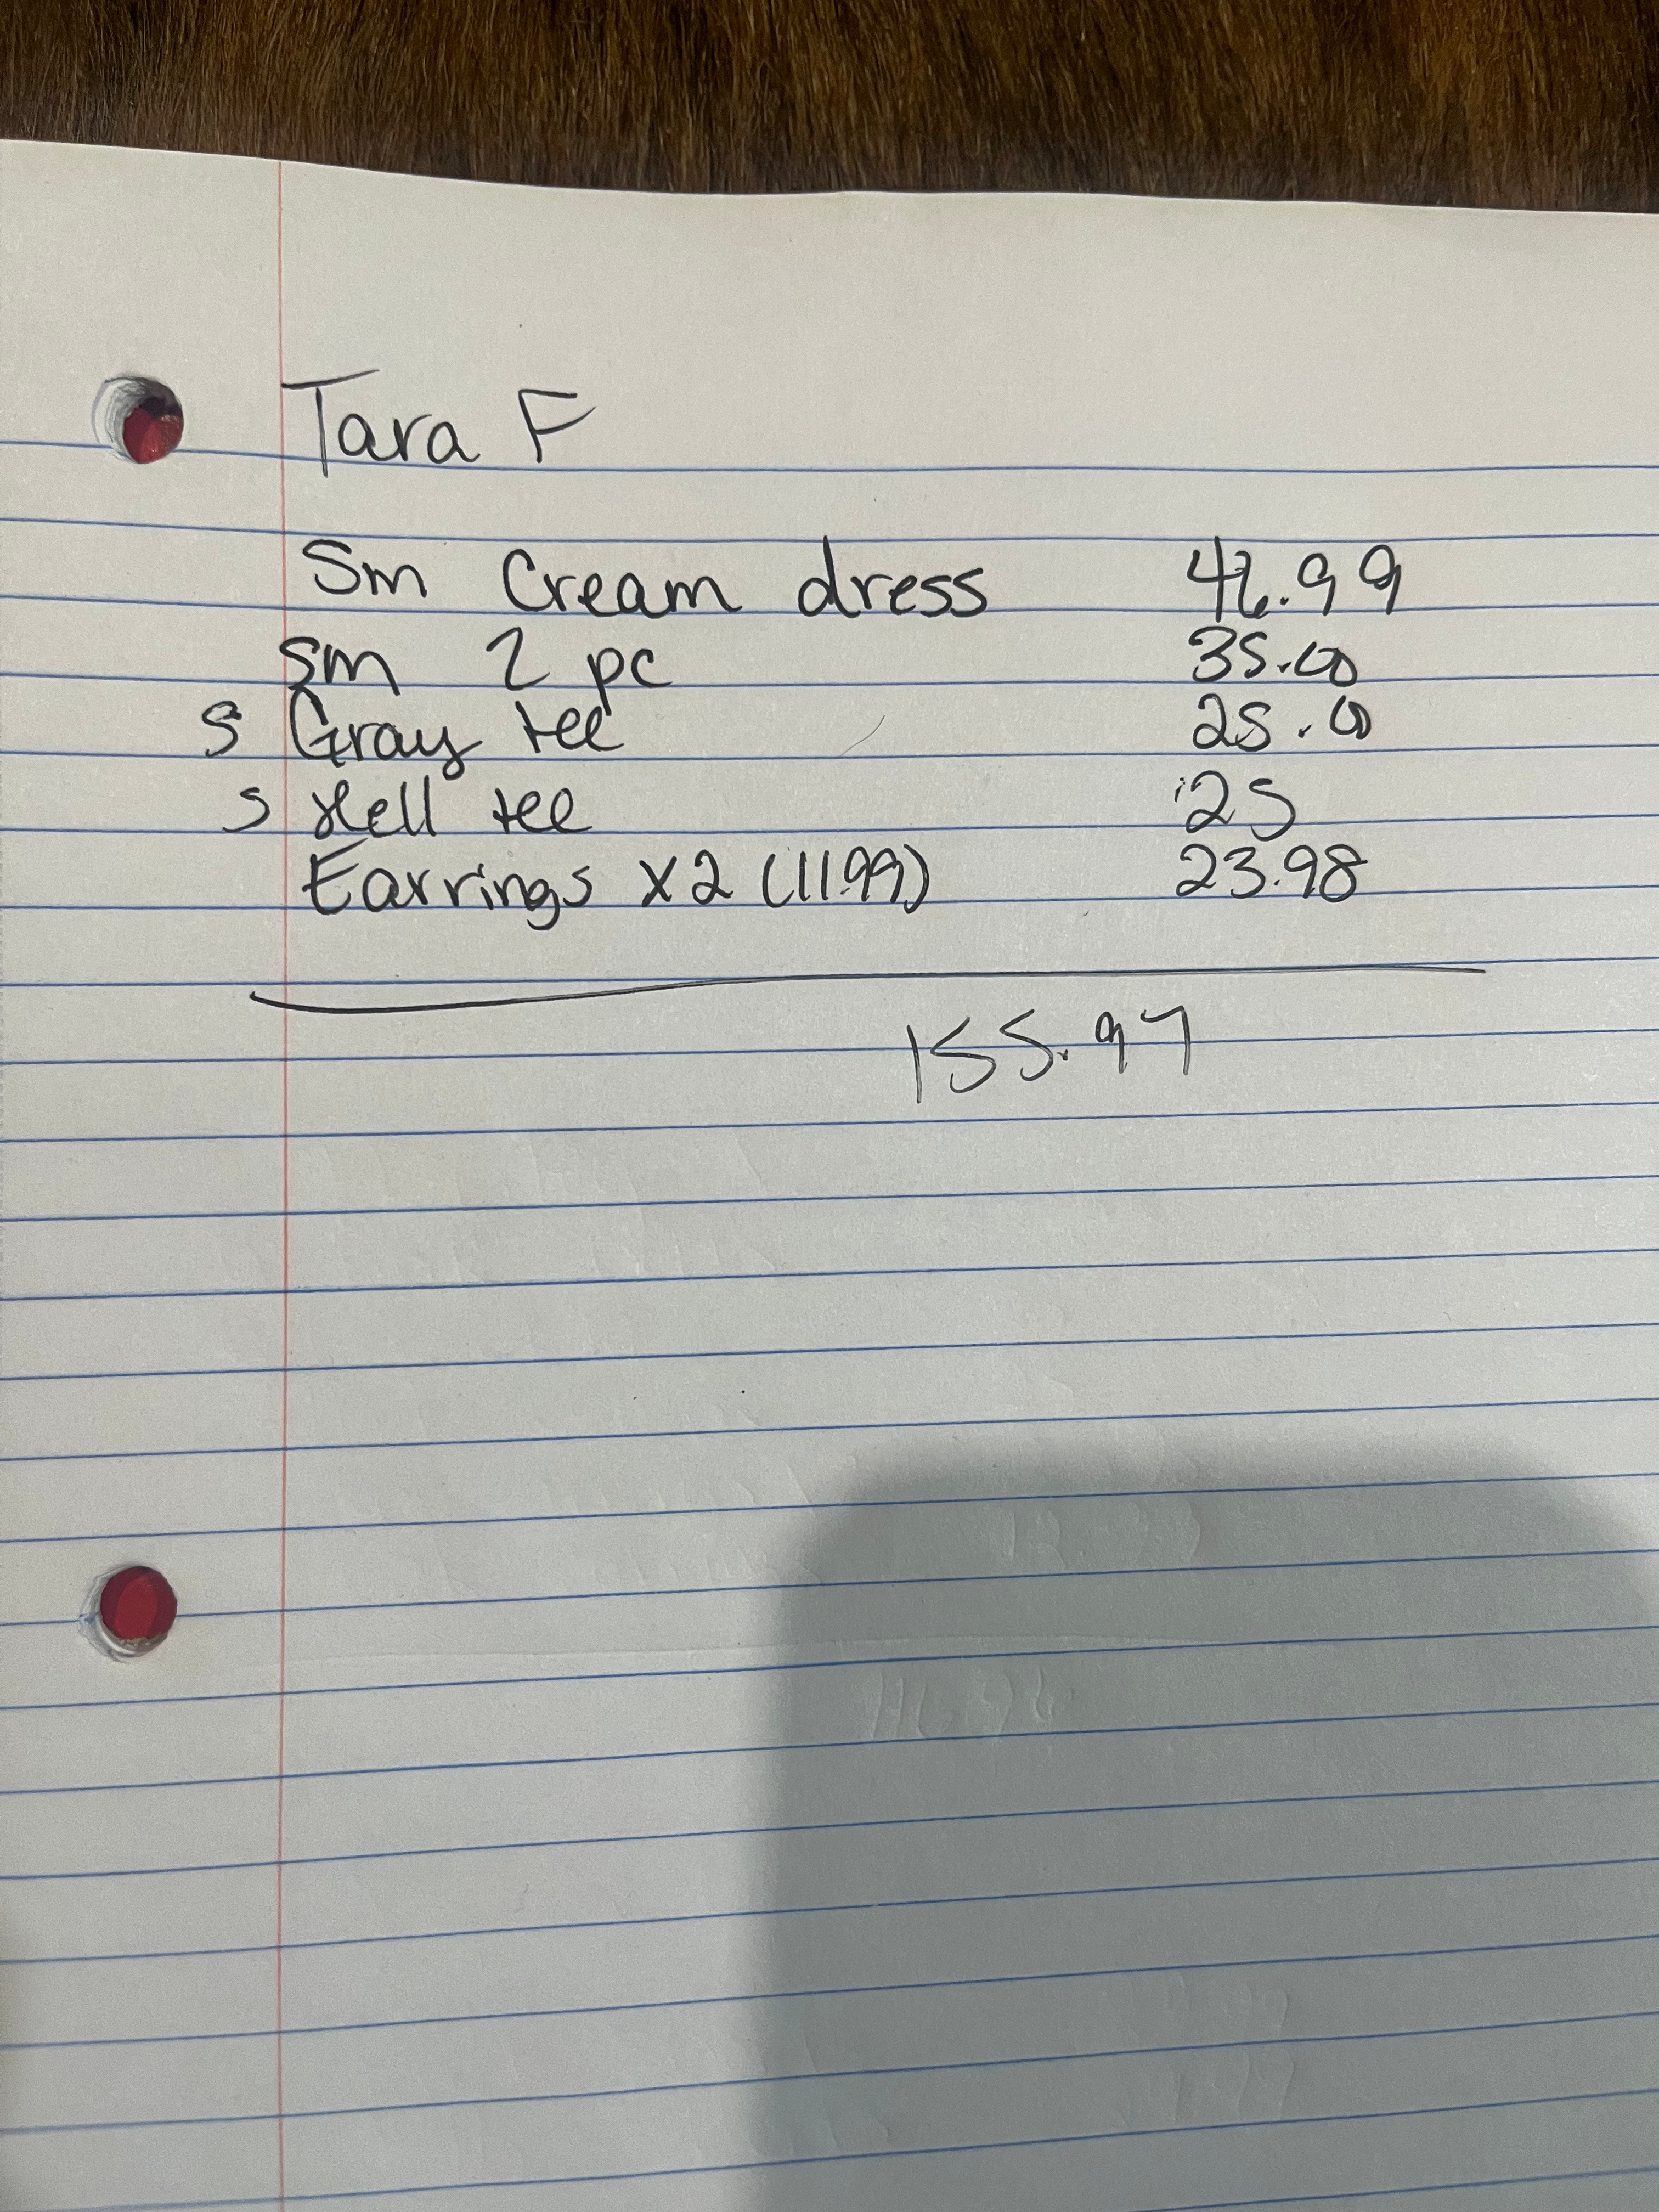 Tara F
Sm Cream dress 46.99
Sm 2 pc 35.00
S Gray tee 25.00
S Hell tee 25
Earrings x2 (11.99) 23.98
155.97